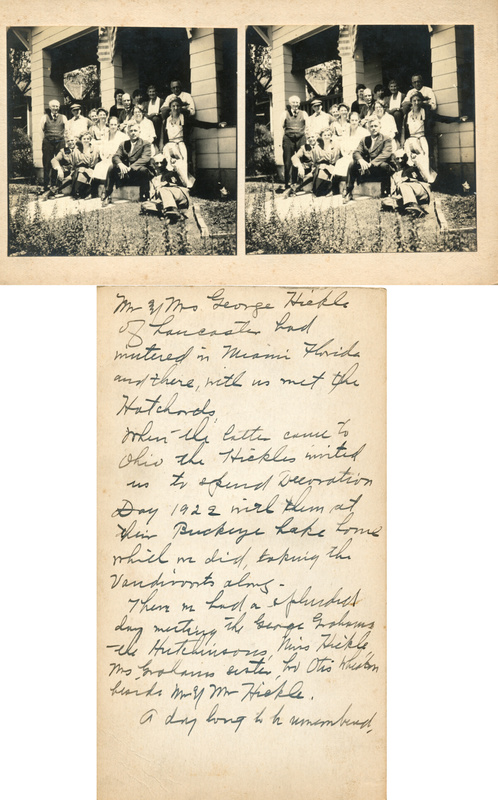 Mr & Mrs George Hickle
of Lancaster had
wintered in Miami Florida
and there, with us met the
Hatchords.
When the latter came to
Ohio the Hickles invited
us to spend Decoration
Day 1922 with them at
their Buckeye Lake home
which we did, taking the
Vandervorts along.
Then we had a splendid
day meeting the George Grahams
the Hutchinsons, Miss Hickle,
Mrs Grahams sister, Otis
besides Mr & Mr Hickle.
A day long to be remembered,